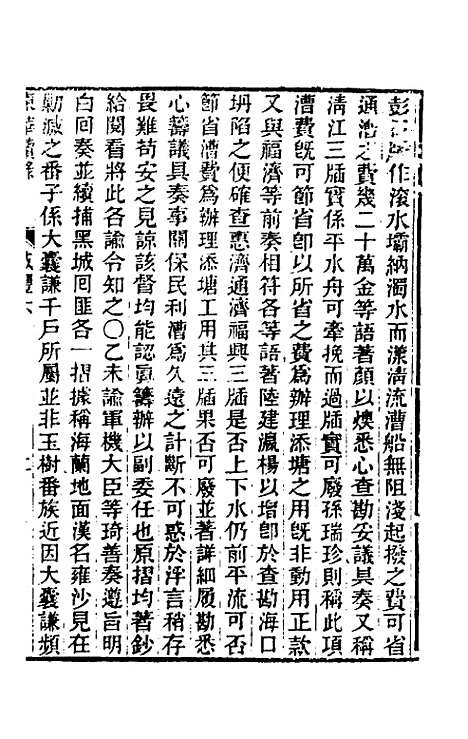 作滾水壩納濁水而漾淸流漕船無阻淺起撥之費可省
通漕之費幾二十萬金等語著顏以燠悉心查勘妥議具奏又稱
淸江三牐實係平水舟可牽挽而過牐實可廢孫瑞珍則稱此項
漕費旣可節省卽以所省之費爲辦理添塘之用旣非動用正款
又與福濟等前奏相符各等語著陸建瀛楊以增卽於查勘海口
坍陷之便確查惠濟通濟福興三牐是否上下水仍前平流可否
節省漕費爲辦理添塘工用其三牐果否可廢並著詳細履勘悉
心籌議具奏事關保民利漕爲久遠之計斷不可惑於浮言稍存
畏難苟安之見諒該督均能認眞籌辦以副委任也原摺均著鈔
給閱看將此各諭令知之〇乙未諭軍機大臣等琦善奏遵旨明
白回奏並續捕黑城回匪各一摺據稱海蘭地面漢名雍沙見在
勦滅之番子係大囊謙千戶所屬並非玉樹番族近因大囊謙頻
東華續錄
咸豐六